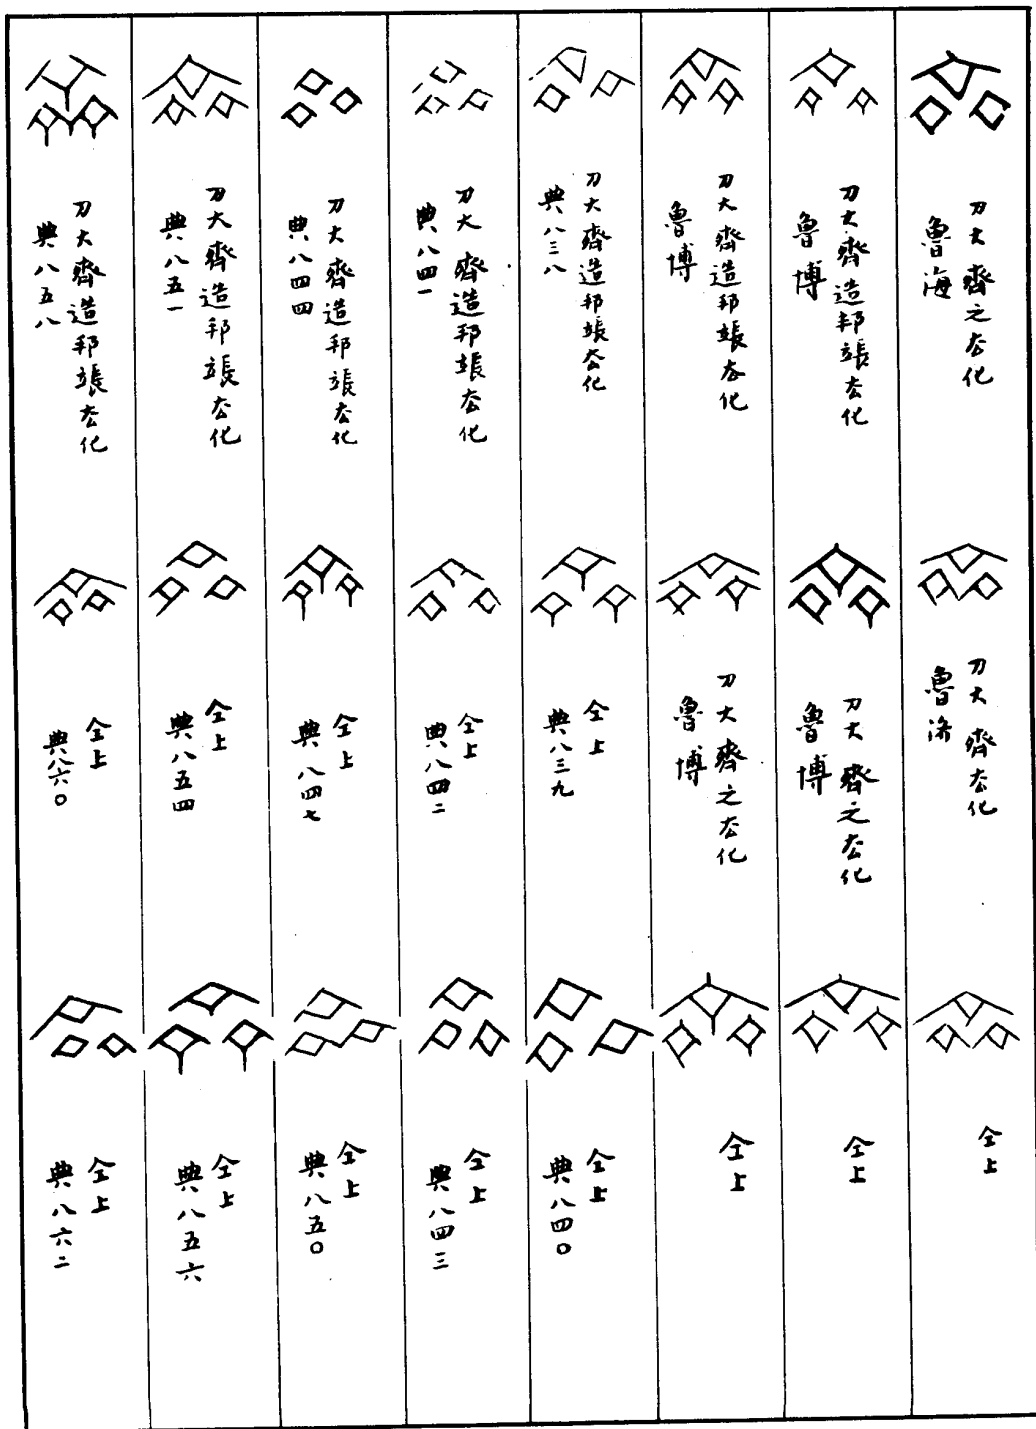 刀大齊之厺化
魯海
刀大齊厺化
魯济
仝上
刀大齊造邦𨱗厺化
魯博
刀大齊之厺化
魯博
仝上
刀大齊造邦𨱗厺化
魯博
刀大齊之厺化
魯博
仝上
刀大齊造邦𨱗厺化
典八三八
仝上
典八三九
仝上
典八四〇
刀大齊造邦𨱗厺化
典八四一
仝上
典八四二
仝上
典八四三
刀大齊造邦𨱗厺化
典八四四
仝上
典八四七
仝上
典八五〇
刀大齊造邦𨱗厺化
典八五一
仝上
典八五四
仝上
典八五六
刀大齊造邦𨱗厺化
典八五八
仝上
典八六〇
仝上
典八六二